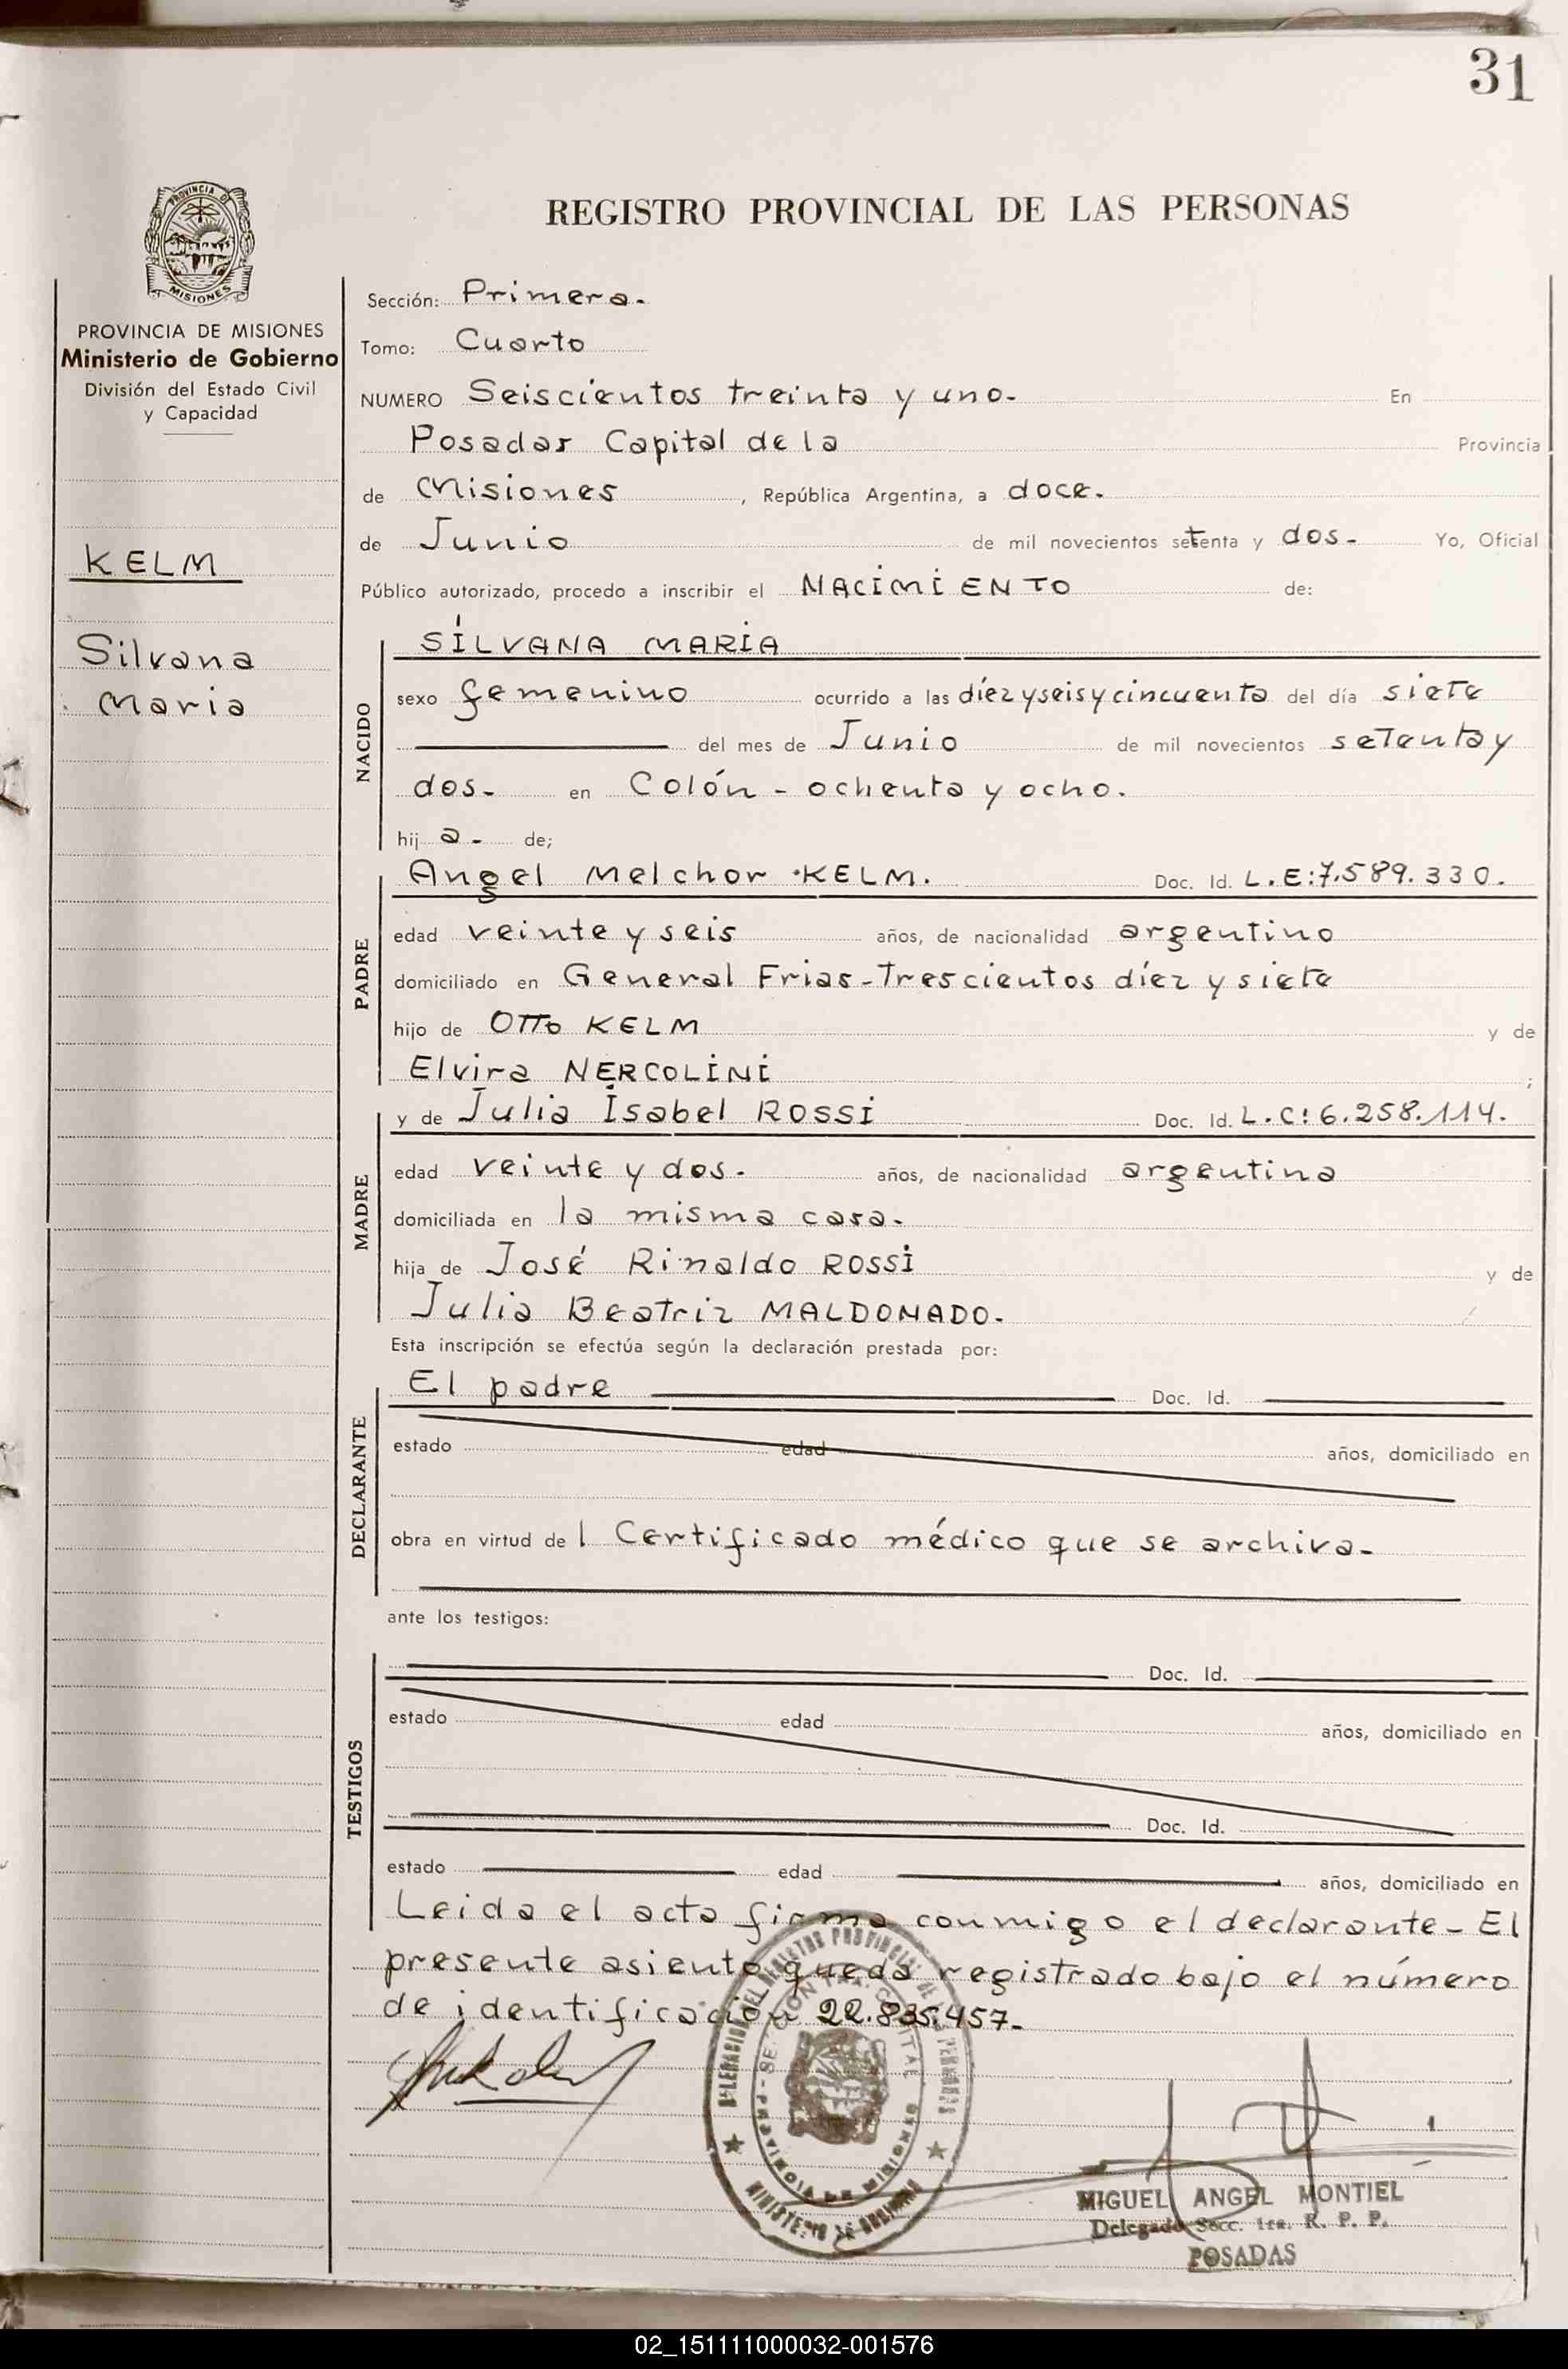 31
PROVINCIA DE
MISIONES
REGISTRO PROVINCIAL DE LAS PERSONAS
PROVINCIA DE MISIONES
Ministerio de Gobierno
División del Estado Civil
y Capacidad
KELM
Silvana
Maria
Sección: Primera.
Tomo: Cuarto
NUMERO Seiscientos treinta y uno- En
Posadas Capital de la Provincia
de Misiones, República Argentina, a doce.
de Junio de mil novecientos setenta y dos- Yo, Oficial
Público autorizado, procedo a inscribir el NACIMIENTO de:
NACIDO
SILVANA MARIA
sexo femenino ocurrido a las díez y seis y cincuenta del día siete
del mes de Junio de mil novecientos setenta y
dos- en Colón - ochenta y ocho.
hij a- de;
PADRE
Angel Melchor KELM. Doc. Id. L.E:7.589.330.
edad veinte y seis años, de nacionalidad argentino
domiciliado en General Frias-Trescientos díez y siete
hijo de OTTO KELM y de
Elvira NERCOLINI ;
MADRE
y de Julia Isabel ROSSI Doc. Id. L.C:6.258.114.
edad veinte y dos- años, de nacionalidad argentina
domiciliada en la misma casa-
hija de José Rinaldo ROSSI y de
Julia Beatriz MALDONADO.
Esta inscripción se efectúa según la declaración prestada por:
DECLARANTE
El padre Doc. Id.
estado edad años, domiciliado en
obra en virtud de l Certificado médico que se archiva-
ante los testigos:
TESTIGOS
Doc. Id.
estado edad años, domiciliado en
Doc. Id.
estado edad años, domiciliado en
Leida el acta firma conmigo el declarante- El
presente asiento queda registrado bajo el número
de identificación 22.835.457-
MIGUEL ANGEL MONTIEL
Delegado Secc. 1ra. R. P. P.
POSADAS
02_151111000032-001576